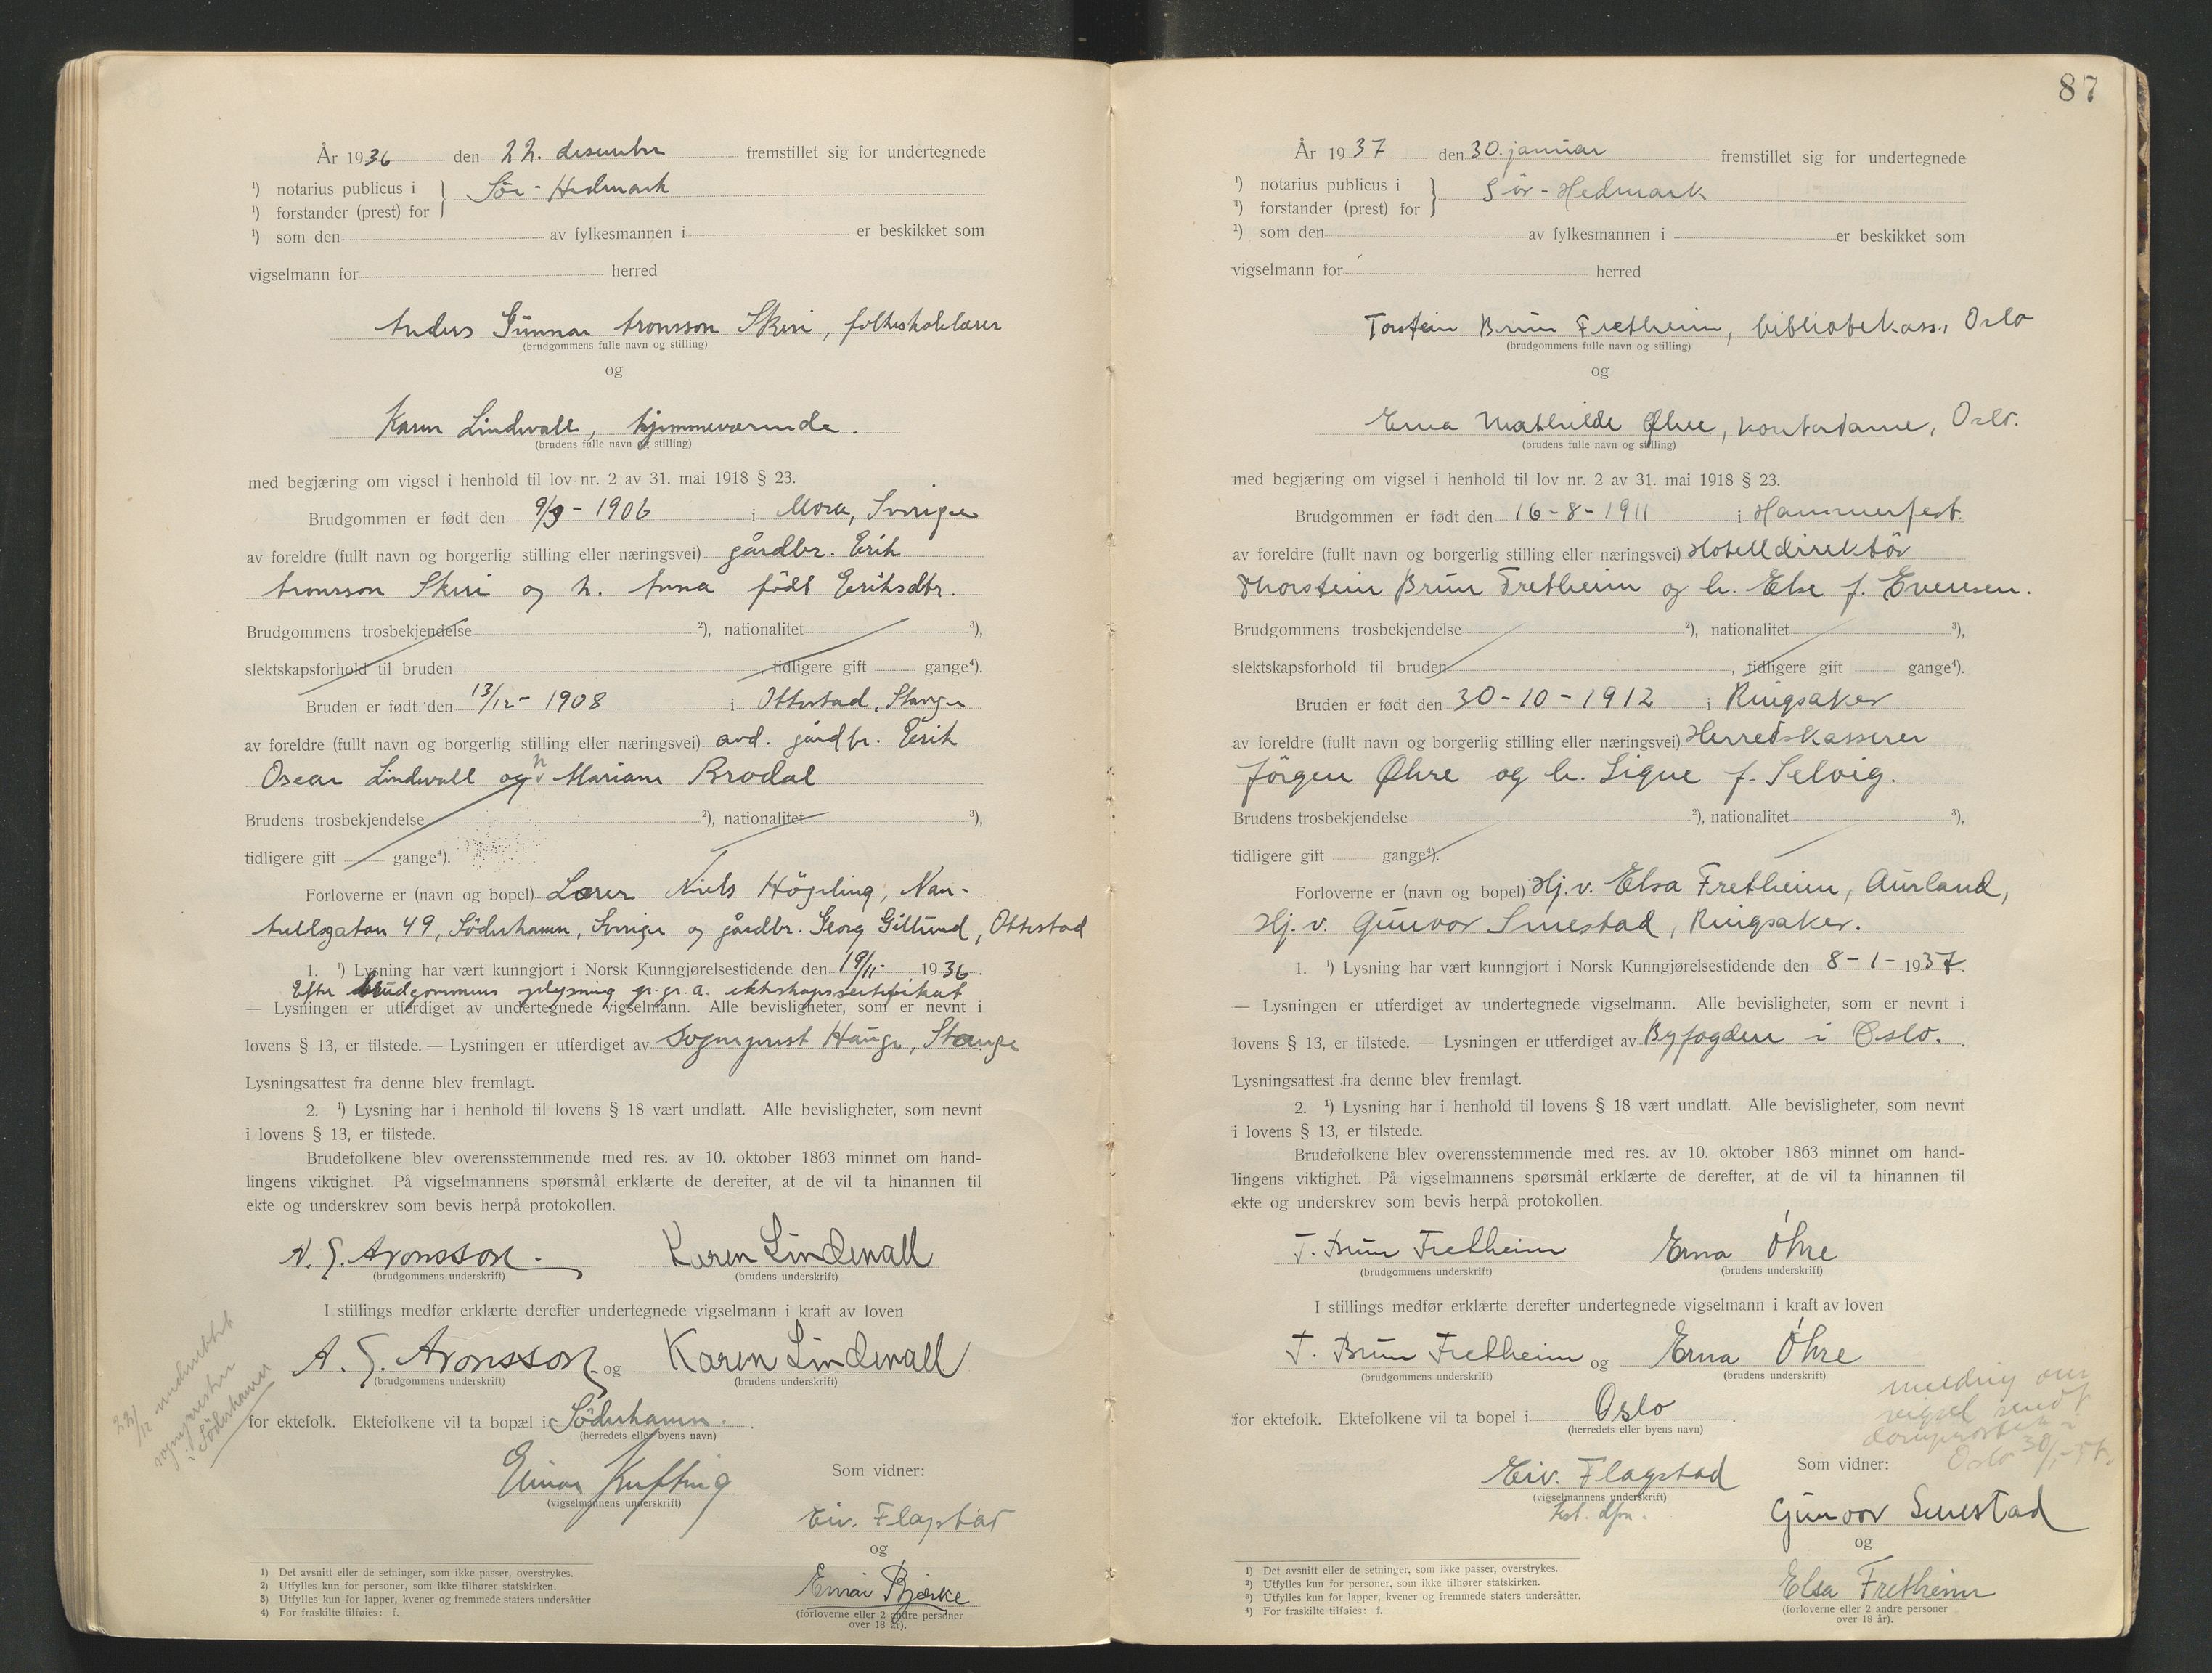 År 1936 den 22. desember fremstillet sig for undertegnede
¹) notarius publicus i } Sør-Hedmark
¹) forstander (prest) for
¹) som den av fylkesmannen i er beskikket som
vigselmann for herred
Anders Gunnar Aronsson Skeri, folkeskolelærer
(brudgommens fulle navn og stilling)
og
Karen Lindwall, hjemmeværende.
(brudens fulle navn og stilling)
med begjæring om vigsel i henhold til lov nr. 2 av 31. mai 1918 § 23.
Brudgommen er født den 9/9 - 1906 i Mora, Sverige
av foreldre (fullt navn og borgerlig stilling eller næringsvei) gårdbr. Erik
Aronsson Skeri og h. Anna født Eriksdtr.
Brudgommens trosbekjendelse ²), nationalitet ³),
slektskapsforhold til bruden , tidligere gift gange⁴).
Bruden er født den 13/12 - 1908 i Ottestad, Stange
av foreldre (fullt navn og borgerlig stilling eller næringsvei) avd. gårdbr. Erik
Oscar Lindwall og h Mariane Brodal
Brudens trosbekjendelse ²), nationalitet ³),
tidligere gift gange⁴).
Forloverne er (navn og bopel) Lærer Niels Högeling, Nan-
tullsgatan 49, Söderhamn, Sverige og gårdbr. Georg Gillund, Ottestad
1. ¹) Lysning har vært kunngjort i Norsk Kunngjørelsestidende den 19/11- 1936.
Efter brudgommens oplysning gr. gr. a. ekteskapssertifikat
— Lysningen er utferdiget av undertegnede vigselmann. Alle bevisligheter, som er nevnt i
lovens § 13, er tilstede. — Lysningen er utferdiget av sogneprest Hauge, Stange
Lysningsattest fra denne blev fremlagt.
2. ¹) Lysning har i henhold til lovens § 18 vært undlatt. Alle bevisligheter, som nevnt
i lovens § 13, er tilstede.
Brudefolkene blev overensstemmende med res. av 10. oktober 1863 minnet om hand-
lingens viktighet. På vigselmannens spørsmål erklærte de derefter, at de vil ta hinannen til
ekte og underskrev som bevis herpå protokollen.
A. G. Aronsson. Karen Lindwall
(brudgommens underskrift) (brudens underskrift)
I stillings medfør erklærte derefter undertegnede vigselmann i kraft av loven
A. G. Aronsson og Karen Lindwall
(brudgommens underskrift) (brudens underskrift)
22/12 underrettet
sognepresten
i Söderhamn
for ektefolk. Ektefolkene vil ta bopæl i Söderhamn.
(herredets eller byens navn)
Einar Kufting
(vigselmannens underskrift)
Som vidner:
Eiv. Flagstad
og
Einar Bjerke
(forloverne eller 2 andre personer
over 18 år).
1) Det avsnitt eller de setninger, som ikke passer, overstrykes.
2) Utfylles kun for personer, som ikke tilhører statskirken.
3) Utfylles kun for lapper, kvener og fremmede staters undersåtter
4) For fraskilte tilføies: f.
87
År 1937 den 30. januar fremstillet sig for undertegnede
¹) notarius publicus i } Sør-Hedmark
¹) forstander (prest) for
¹) som den av fylkesmannen i er beskikket som
vigselmann for herred
Torstein Brun Fretheim, bibliotekass., Oslo
(brudgommens fulle navn og stilling)
og
Erna Mathilde Øhre, kontordame, Oslo.
(brudens fulle navn og stilling)
med begjæring om vigsel i henhold til lov nr. 2 av 31. mai 1918 § 23.
Brudgommen er født den 16-8-1911 i Hammerfest.
av foreldre (fullt navn og borgerlig stilling eller næringsvei) Hotelldirektör
Thorstein Brun Fretheim og h. Else f. Evensen.
Brudgommens trosbekjendelse ²), nationalitet ³),
slektskapsforhold til bruden , tidligere gift gange⁴).
Bruden er født den 30-10-1912 i Ringsaker
av foreldre (fullt navn og borgerlig stilling eller næringsvei) Herredskasserer
Jörgen Øhre og h. Signe f. Selvig.
Brudens trosbekjendelse ²), nationalitet ³),
tidligere gift gange⁴).
Forloverne er (navn og bopel) Hj.v. Elsa Fretheim, Aurland,
Hj. v. Gunvor Smestad, Ringsaker.
1. ¹) Lysning har vært kunngjort i Norsk Kunngjørelsestidende den 8-1-1937.
— Lysningen er utferdiget av undertegnede vigselmann. Alle bevisligheter, som er nevnt i
lovens § 13, er tilstede. — Lysningen er utferdiget av Byfogden i Oslo.
Lysningsattest fra denne blev fremlagt.
2. ¹) Lysning har i henhold til lovens § 18 vært undlatt. Alle bevisligheter, som nevnt
i lovens § 13, er tilstede.
Brudefolkene blev overensstemmende med res. av 10. oktober 1863 minnet om hand-
lingens viktighet. På vigselmannens spørsmål erklærte de derefter, at de vil ta hinannen til
ekte og underskrev som bevis herpå protokollen.
T. Brun Fretheim Erna Öhre
(brudgommens underskrift) (brudens underskrift)
I stillings medfør erklærte derefter undertegnede vigselmann i kraft av loven
T. Brun Fretheim og Erna Öhre
(brudgommens underskrift) (brudens underskrift)
melding om
vigsel sendt
domprosten i
Oslo 30/1-37.
for ektefolk. Ektefolkene vil ta bopel i Oslo
(herredets eller byens navn)
Eiv. Flagstad
(vigselmannens underskrift)
Kst. dfm.
Som vidner:
Gunvor Smestad
og
Elsa Fretheim
(forloverne eller 2 andre personer
over 18 år).
1) Det avsnitt eller de setninger, som ikke passer, overstrykes.
2) Utfylles kun for personer, som ikke tilhører statskirken.
3) Utfylles kun for lapper, kvener og fremmede staters undersåtter.
4) For fraskilte tilføies: f.